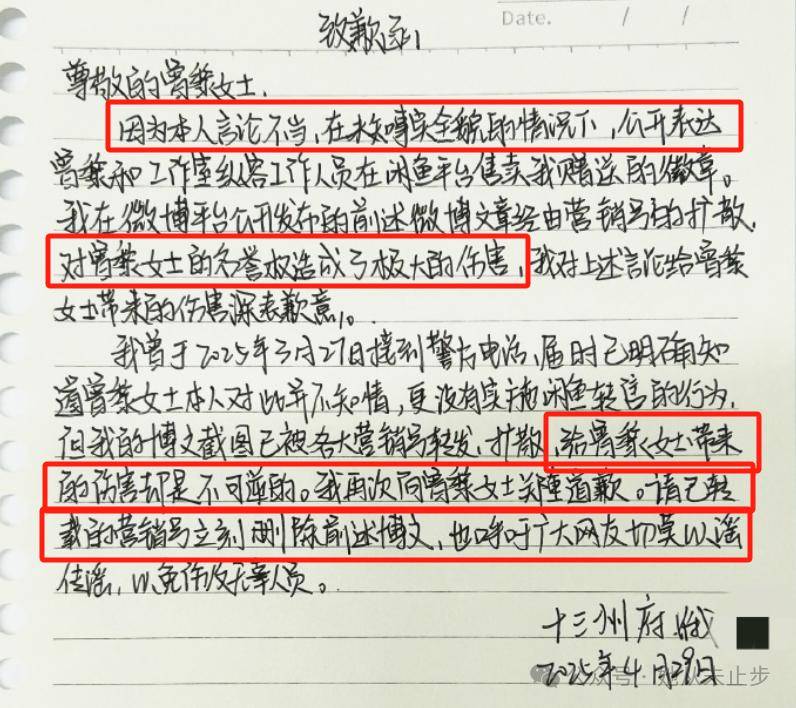 Date. / /
致歉函
尊敬的曾黎女士.
因为本人言论不当,在未知事实全貌的情况下,公开表达
曾黎和工作室纵容工作人员在闲鱼平台售卖我赠送的徽章。
我在微博平台公开发布的前述微博文章经由营销号的扩散,
对曾黎女士的名誉权造成了极大的伤害,我对上述言论给曾黎
女士带来的伤害深表歉意。
我曾于2025年3月27日接到警方电话,届时已明确知
道曾黎女士本人对此并不知情,更没有实施闲鱼转售的行为,
但我的博文截图已被各大营销号转发、扩散,给曾黎女士带来
的伤害却是不可逆的。我再次向曾黎女士郑重道歉。请已转
载的营销号立刻删除前述博文,也呼吁广大网友切莫以谣
传谣,以免伤及无辜人员。
十三州府
2025年4月29日
公众号·她从未止步